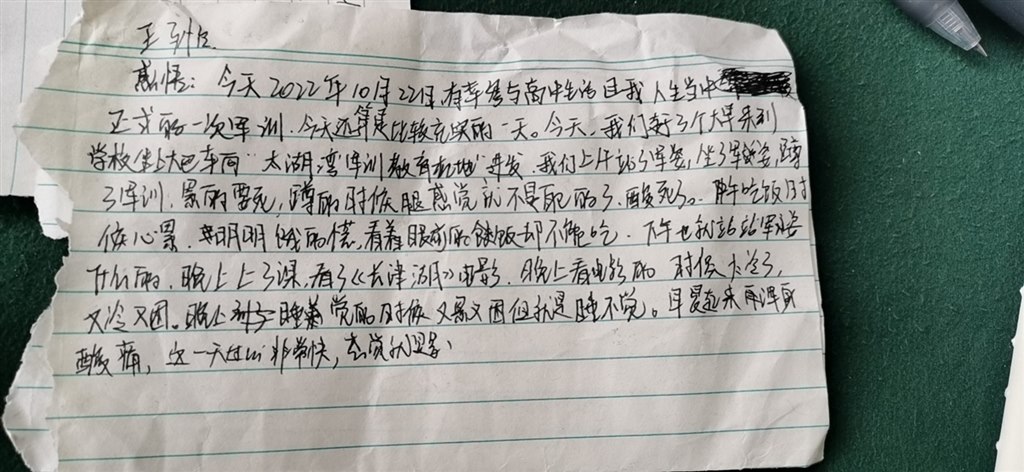 王
感悟：今天2022年10月22日有幸参与高中生活自我人生当中
正式的一次军训，今天还算是比较充实的一天。今天，我们起了个大早来到
学校坐上大巴车向"太湖湾军训教育基地"进发，我们上午站了军姿，坐了军姿，蹲
了军训，累的要死，蹲的时候腿感觉就不是我的了，酸死了。中午吃饭时
候心累，明明饿的慌，看着眼前的饭却不能吃，下午也就站站军姿
什么的，晚上上了课，看了《长津湖》电影，晚上看电影的时候太冷了，
又冷又困。晚上到了睡觉的时候又累又困但就是睡不觉。早晨起来再浑身
酸痛，这一天过的非常快，感觉就是累、